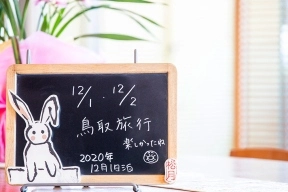 12/1 . 12/2
鳥取旅行
楽しかったね
2020年
12月1日